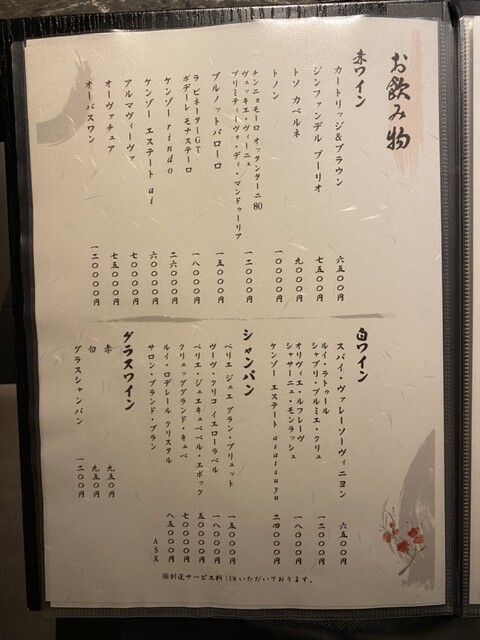 お飲み物
赤ワイン
カートリッジ&ブラウン 六五〇〇円
ジンファンデル プーリオ 七五〇〇円
トソ カベルネ 九〇〇〇円
トノン 一〇〇〇〇円
チンニョモーロ オッタンターニ80
ヴェッキエ・ヴィーニュ
プリミティーヴォ・ディ・マンドゥーリア 一二〇〇〇円
ブルノットバローロ 一五〇〇〇円
ラ ピネーターGT
ボデーレ モナステーロ 一八〇〇〇円
ケンゾー rindo 二六〇〇〇円
ケンゾー エステート ai 六〇〇〇〇円
アルマヴィーヴァ 七〇〇〇〇円
オーヴァチュア 七五〇〇〇円
オーパスワン 一二〇〇〇〇円
白ワイン
スパイ・ヴァレーソーヴィニヨン 六五〇〇円
ルイ・ラトゥール
シャブリ・プルミエ・クリュ 一二〇〇〇円
オリヴィエ・ルフレーヴ
シャサーニュ・モンラッシェ
ケンゾー エステート asatsuyu 二四〇〇〇円
シャンパン
ペリエ ジュエ グラン・ブリュット 一五〇〇〇円
ヴーヴ・クリコ イエローラベル 一八〇〇〇円
ペリエ・ジュエキュベベル・エポック 五〇〇〇〇円
クリュッググランド・キュベ 七〇〇〇〇円
ルイ・ロデレール クリスタル 八五〇〇〇円
サロン・ブランド・ブラン ASK
グラスワイン
赤 九五〇円
白 九五〇円
グラスシャンパン 一二〇〇円
※別途サービス料10%いただいております。